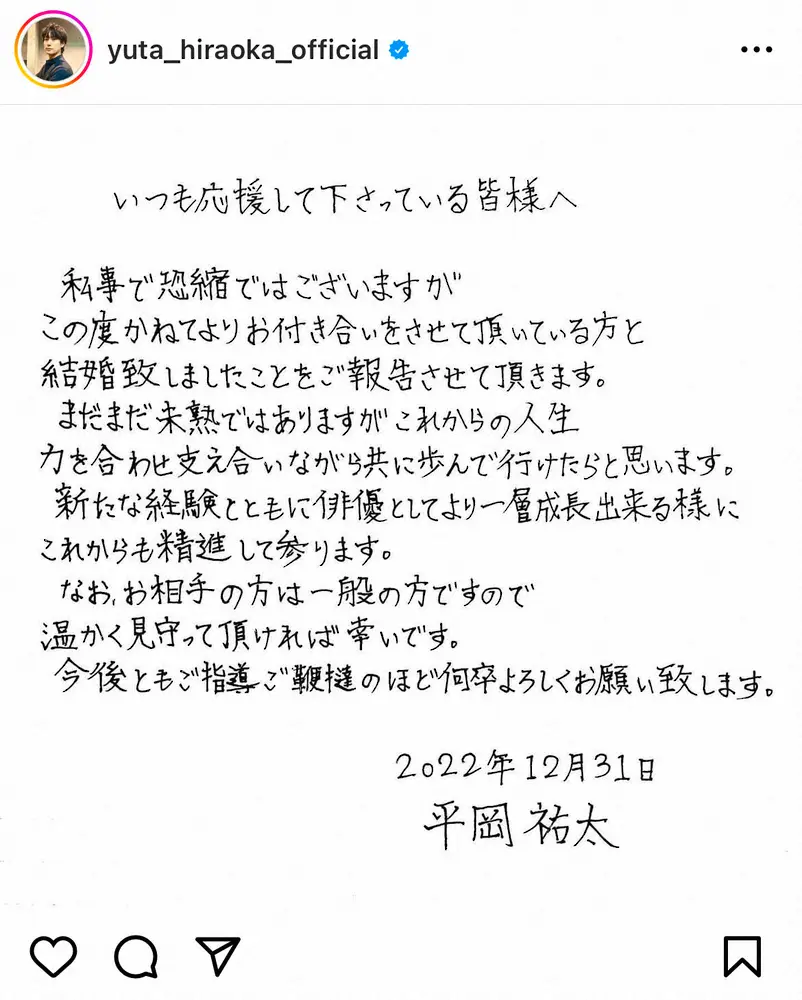 yuta_hiraoka_official
いつも応援して下さっている皆様へ
私事で恐縮ではございますが
この度かねてよりお付き合いをさせて頂いている方と
結婚致しましたことをご報告させて頂きます。
まだまだ未熟ではありますがこれからの人生
力を合わせ支え合いながら共に歩んで行けたらと思います。
新たな経験とともに俳優としてより一層成長出来る様に
これからも精進して参ります。
なお、お相手の方は一般の方ですので
温かく見守って頂ければ幸いです。
今後ともご指導ご鞭撻のほど何卒よろしくお願い致します。
2022年12月31日
平岡祐太